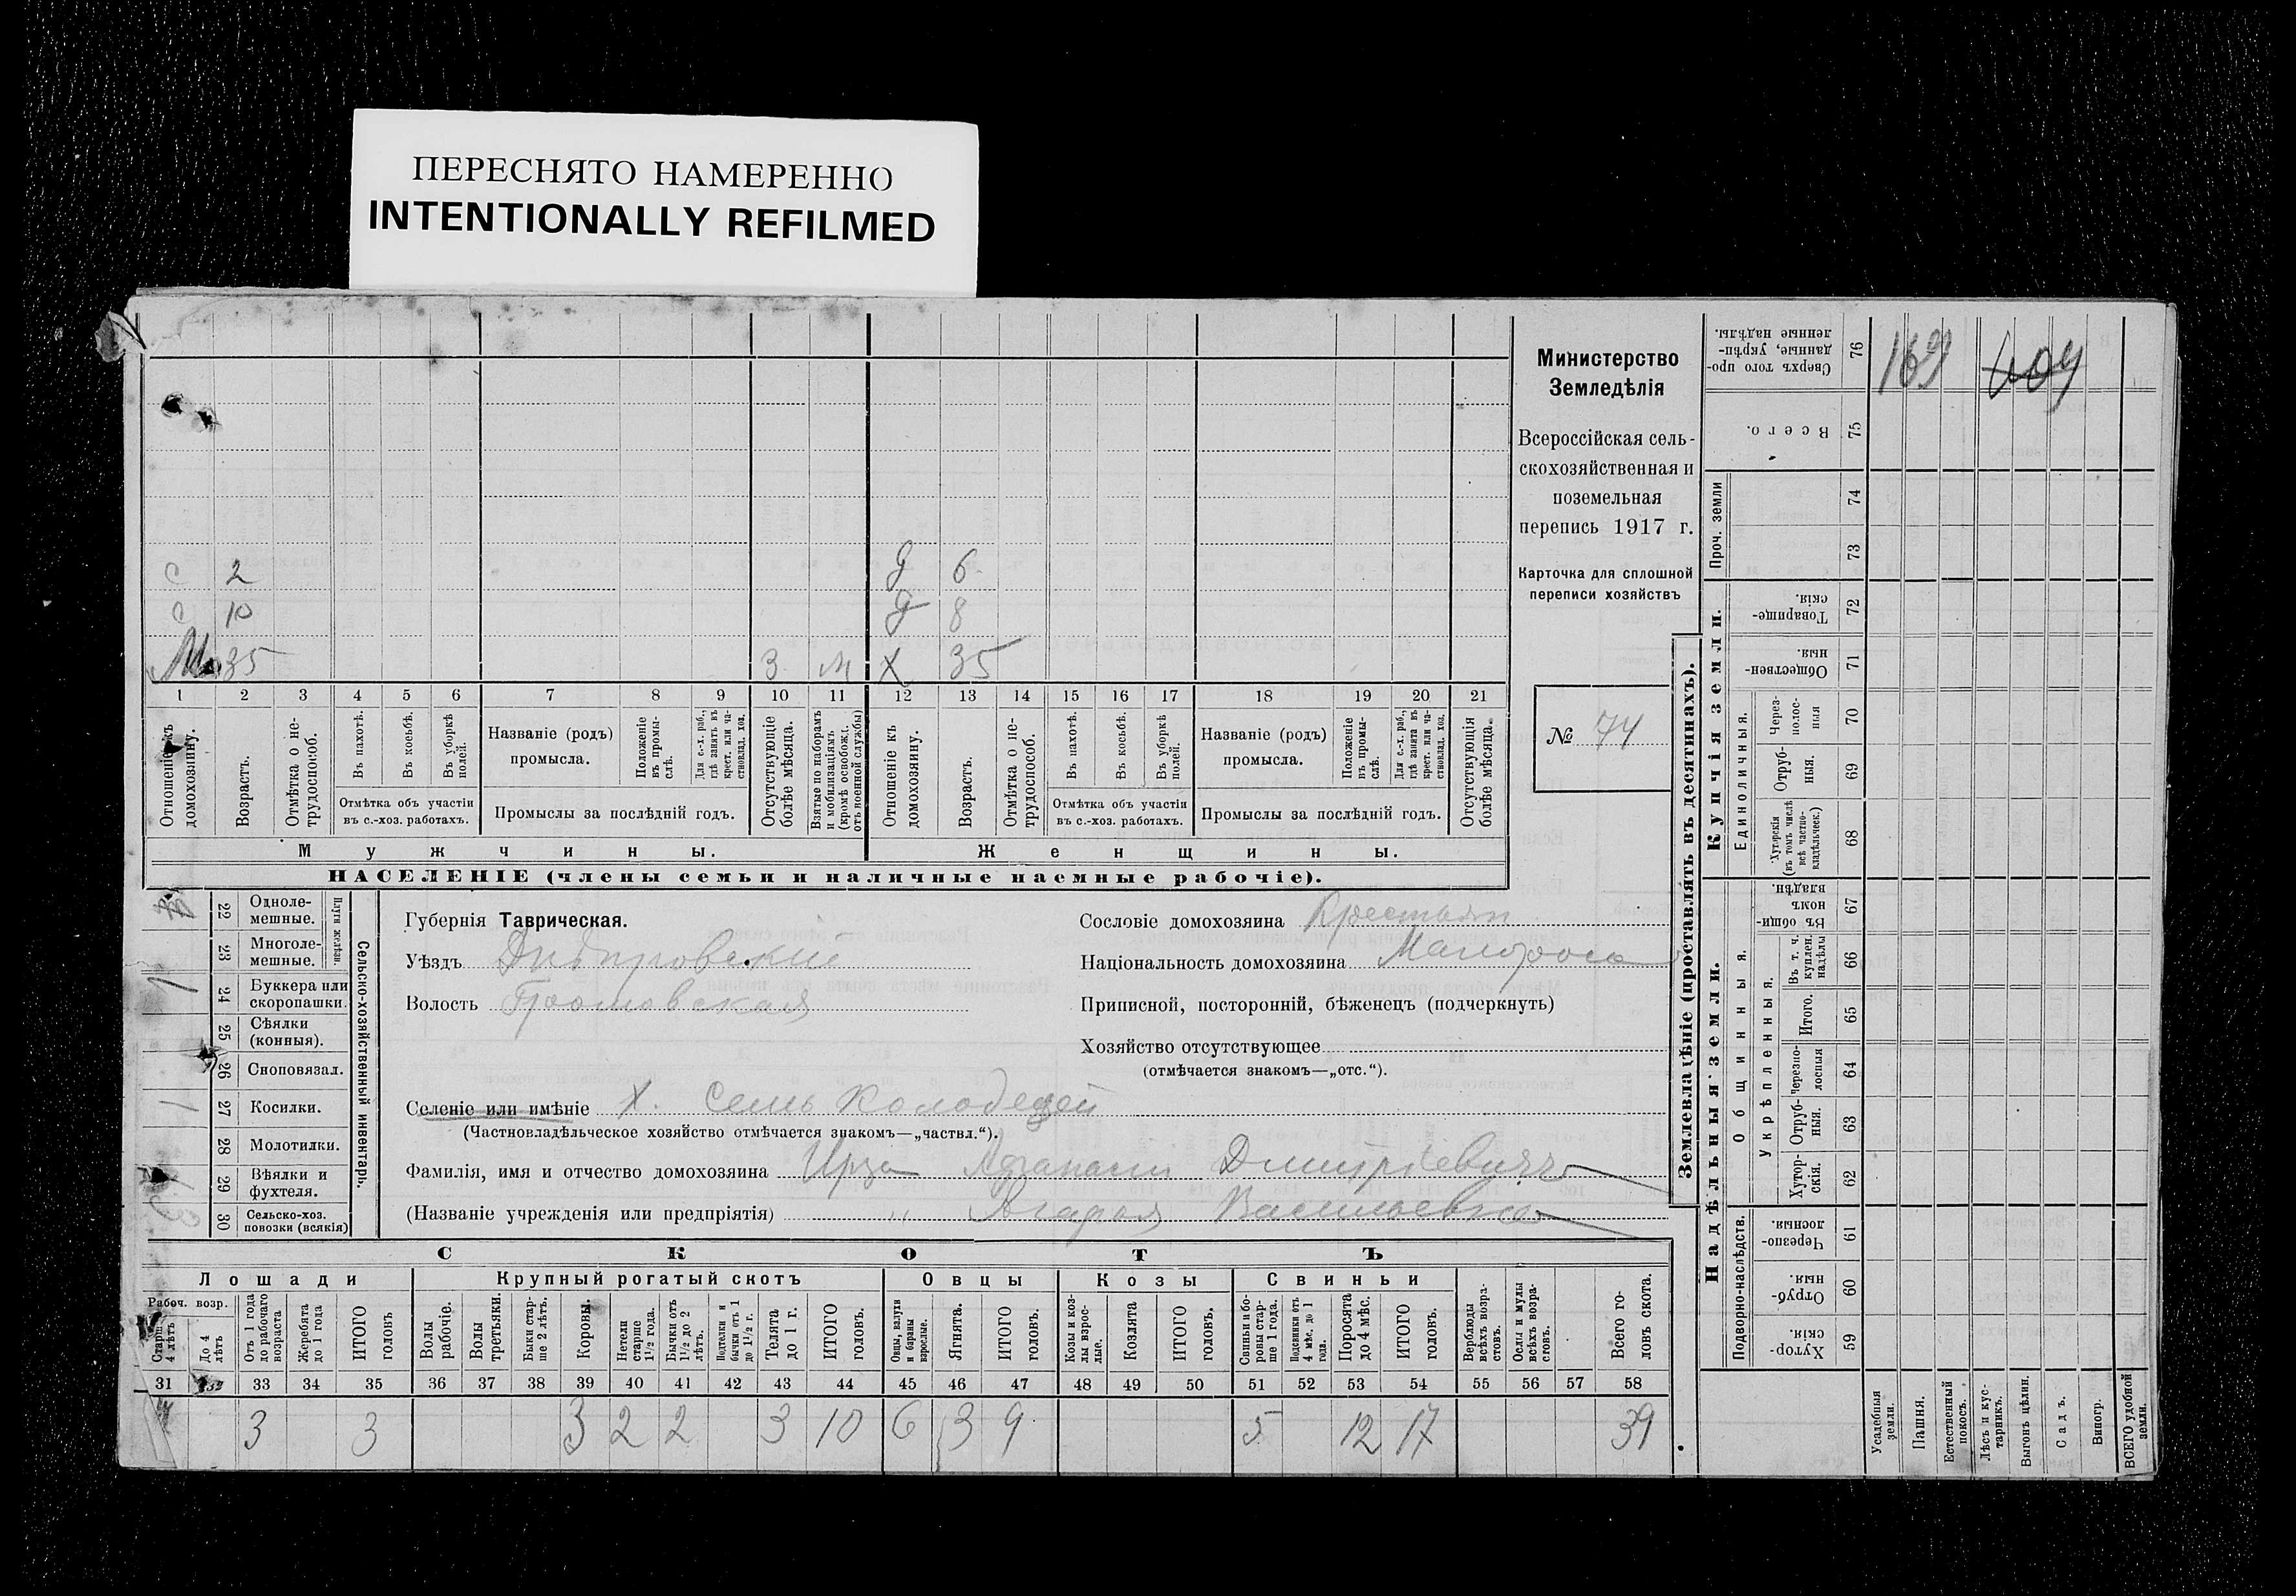 ПЕРЕСНЯТО НАМЕРЕННО
INTENTIONALLY REFILMED
с 2 д 6
с 10 д 8
35 3 м х 35
1 2 3 4 5 6 7 8 9 10 11 12 13 14 15 16 17 18 19 20 21
Отношеніе къ домохозяину.
Возрастъ.
Отмѣтка о нетрудоспособ.
Въ пахотѣ.
Въ косьбѣ.
Въ уборкѣ полей.
Отмѣтка объ участіи въ с.-хоз. работахъ.
Названіе (родъ) промысла.
Положеніе въ промыслѣ.
Для с.-х. раб., гдѣ занятъ въ крест. или частновлад. хоз.
Промыслы за послѣдній годъ.
Отсутствующіе болѣе мѣсяца.
Взятые по наборамъ и мобилизаціямъ (кромѣ освобожд. отъ военной службы)
Отношеніе къ домохозяину.
Возрастъ.
Отмѣтка о нетрудоспособ.
Въ пахотѣ.
Въ косьбѣ.
Въ уборкѣ полей.
Отмѣтка объ участіи въ с.-хоз. работахъ.
Названіе (родъ) промысла.
Положеніе въ промыслѣ.
Для с.-х. раб., гдѣ занята въ крест. или частновлад. хоз.
Промыслы за послѣдній годъ.
Отсутствующія болѣе мѣсяца.
Мужчины. Женщины.
НАСЕЛЕНІЕ (члены семьи и наличные наемные рабочіе).
Министерство
Земледѣлія
Всероссійская сель-
скохозяйственная и
поземельная
перепись 1917 г.
Карточка для сплошной
переписи хозяйствъ
№ 74
22 Одноле-мешные.
23 Многоле-мешные.
Плуги желѣзн.
1 24 Буккера или скоропашки.
25 Сѣялки (конныя).
26 Сноповязал.
1 27 Косилки.
28 Молотилки.
29 Вѣялки и фухтеля.
30 Сельско-хоз. повозки (всякія)
Сельско-хозяйственный инвентарь.
Губернія Таврическая.
Уѣздъ Днѣпровскій
Волость Громовская
Сословіе домохозяина Крестьян
Національность домохозяина Малоросс
Приписной, посторонній, бѣженецъ (подчеркнуть)
Хозяйство отсутствующее
(отмѣчается знакомъ—„отс.“).
Селеніе или имѣніе х. Семь Колодезей
(Частновладѣльческое хозяйство отмѣчается знакомъ—„частвл.“).
Фамилія, имя и отчество домохозяина Афанасій Дмитріевичъ
(Названіе учрежденія или предпріятія) " Васильевна
СКОТЪ
Лошади Крупный рогатый скотъ Овцы Козы Свиньи
Рабоч. возр.
Старш. 4 лѣтъ
До 4 лѣтъ
Отъ 1 года до рабочаго возраста
Жеребята до 1 года
ИТОГО головъ
Волы рабочіе.
Волы третьяки.
Быки старше 2 лѣтъ.
Коровы.
Нетели старше 1½ года.
Бычки отъ 1½ до 2 лѣтъ.
Подтелки и бычки отъ 1 до 1½ г.
Телята до 1 г.
ИТОГО головъ.
Овцы, валухи и бараны взрослые.
Ягнята.
ИТОГО головъ.
Козы и козлы взрослые.
Козлята
ИТОГО головъ.
Свиньи и боровы старше 1 года.
Подсвинки отъ 4 мѣс. до 1 года.
Поросята до 4 мѣс.
ИТОГО головъ.
Верблюды всѣхъ возрастовъ.
Ослы и мулы всѣхъ возрастовъ.
Всего головъ скота.
31 32 33 34 35 36 37 38 39 40 41 42 43 44 45 46 47 48 49 50 51 52 53 54 55 56 57 58
3 3 3 2 2 3 10 6 3 9 5 12 17 39
Землевладѣніе (проставлять въ десятинахъ).
Сверхъ того проданные, укрѣпленные надѣлы. 76 169
Всего. 75
Проч. земли 74
73
Купчія земли.
Товарищескія. 72
Общественныя. 71
Единоличныя.
Черезполосныя 70
Отрубныя. 69
Хуторскія (въ томъ числѣ всѣ частновладѣльческ.) 68
Надѣльныя земли.
Общинныя.
Въ общинномъ владѣн. 67
Укрѣпленныя.
Въ т. ч. куплен. надѣлы 66
Итого. 65
Черезполосныя 64
Отрубныя. 63
Хуторскія. 62
Подворно-наслѣдств.
Черезполосныя. 61
Отрубныя. 60
Хуторскія. 59
Усадебныя земли.
Пашня.
Естественный покосъ.
Лѣсъ и кустарникъ.
Выгонъ цѣлин.
Садъ.
Виногр.
ВСЕГО удобной земли.